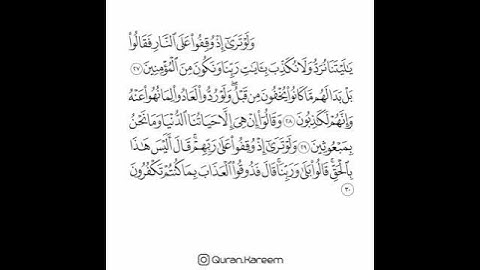 وَلَوْ تَرَىٰٓ إِذْ وُقِفُوا۟ عَلَى ٱلنَّارِ فَقَالُوا۟
يَٰلَيْتَنَا نُرَدُّ وَلَا نُكَذِّبَ بِـَٔايَٰتِ رَبِّنَا وَنَكُونَ مِنَ ٱلْمُؤْمِنِينَ ٢٧
بَلْ بَدَا لَهُم مَّا كَانُوا۟ يُخْفُونَ مِن قَبْلُ ۖ وَلَوْ رُدُّوا۟ لَعَادُوا۟ لِمَا نُهُوا۟ عَنْهُ
وَإِنَّهُمْ لَكَٰذِبُونَ ٢٨ وَقَالُوٓا۟ إِنْ هِىَ إِلَّا حَيَاتُنَا ٱلدُّنْيَا وَمَا نَحْنُ
بِمَبْعُوثِينَ ٢٩ وَلَوْ تَرَىٰٓ إِذْ وُقِفُوا۟ عَلَىٰ رَبِّهِمْ ۚ قَالَ أَلَيْسَ هَٰذَا
بِٱلْحَقِّ ۚ قَالُوا۟ بَلَىٰ وَرَبِّنَا ۚ قَالَ فَذُوقُوا۟ ٱلْعَذَابَ بِمَا كُنتُمْ تَكْفُرُونَ
٣٠
Quran.Kareem